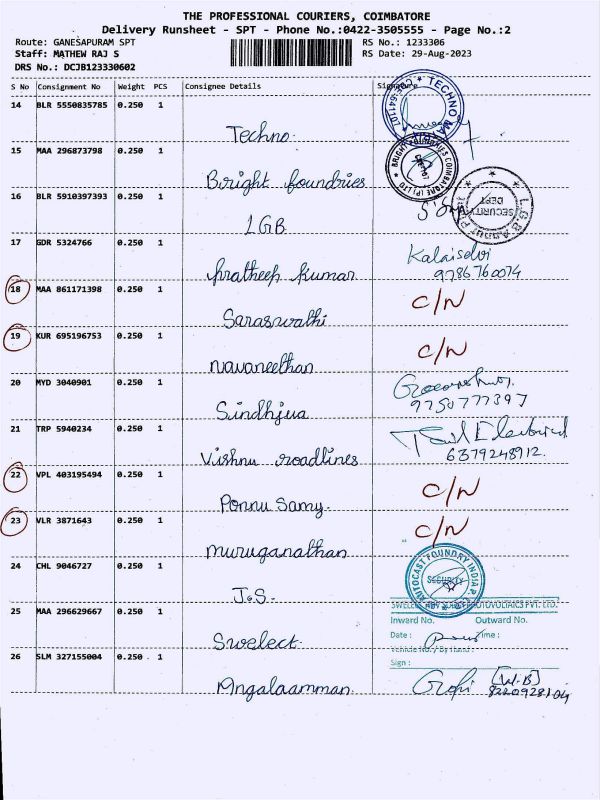 THE PROFESSIONAL COURIERS, COIMBATORE
Delivery Runsheet - SPT - Phone No.:0422-3505555 - Page No.:2
Route: GANESAPURAM SPT
RS No.: 1233306
Staff: MATHEW RAJ S
RS Date: 29-Aug-2023
DRS No.: DCJB123330602
S No Consignment No Weight PCS Consignee Details Signature
14 BLR 5550835785 0.250 1
Techno.
15 MAA 296873798 0.250 1
Bright foundries
16 BLR 5910397393 0.250 1
LGB
17 GDR 5324766 0.250 1
Kalaiselvi
pratheep kumar 9786760074
18 MAA 861171398 0.250 1
C/N
Saraswathi
19 KUR 695196753 0.250 1
C/N
navaneethan
20 MYD 3040901 0.250 1
Sindhjua 9750777397
21 TRP 5940234 0.250 1
Vishnu roadlines 6379248912.
22 VPL 403195494 0.250 1
C/N
Ponnu Samy.
23 VLR 3871643 0.250 1
C/N
muruganathan
24 CHL 9046727 0.250 1
AUTOCAST FOUNDRY INDIA P
SECURITY
J.G.S.
25 MAA 296629667 0.250 1
Inward No. Outward No.
Date : Time :
Swelect.
Vehicle No. / By Hand :
26 SLM 327155004 0.250 1
Sign :
Angalaamman. Gopi 8220928104